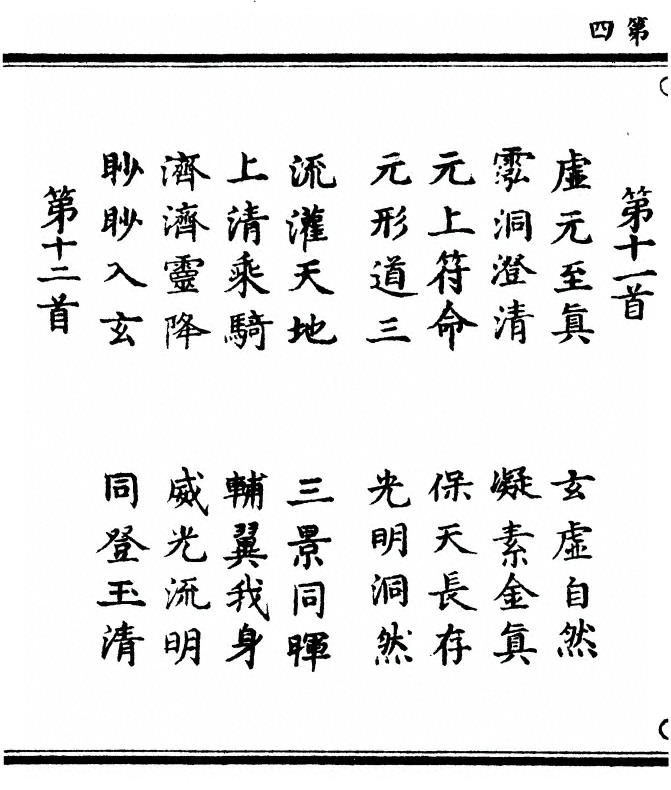 第四
第十一首
虛元至眞　玄虛自然
霐洞澄清　凝素金眞
元上符命　保天長存
元形道三　光明洞然
流灌天地　三景同暉
上清乘騎　輔翼我身
濟濟靈降　威光流明
眇眇入玄　同登玉清
第十二首